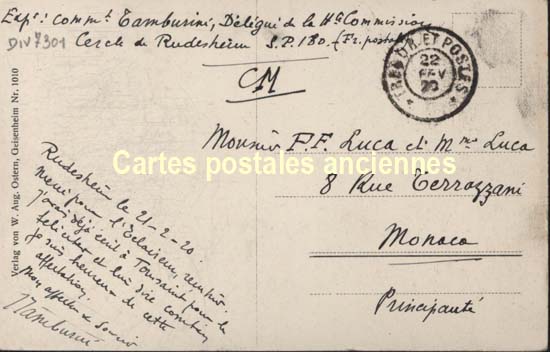 Exp: Commt Tamburini, Délégué de la Hte Commission
DIV7301
Cercle de Rudesheim S.P. 180. (Fr. postale)
CM
TRESOR. ET POSTES
22
FEV
20
Monsieur F.F. Luca et Mme Luca
8 Rue Terrazzani
Monaco
Principauté
Cartes postales anciennes
Rudesheim le 21-2-20.
Merci pour l'Eclaireur, reçu hier.
J'avais déjà écrit à Toussaint pour le
féliciter et lui dire combien
je suis heureux de cette
affectation.
Mon affectx souvenir
Tamburini
Verlag von W. Aug. Ostern, Geisenheim Nr. 1010